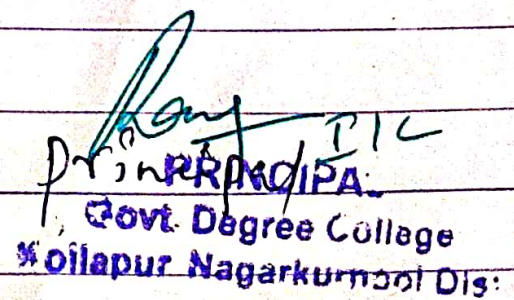 I/C
Principal
PRINCIPAL
Govt. Degree College
Kollapur Nagarkurnool Dis: